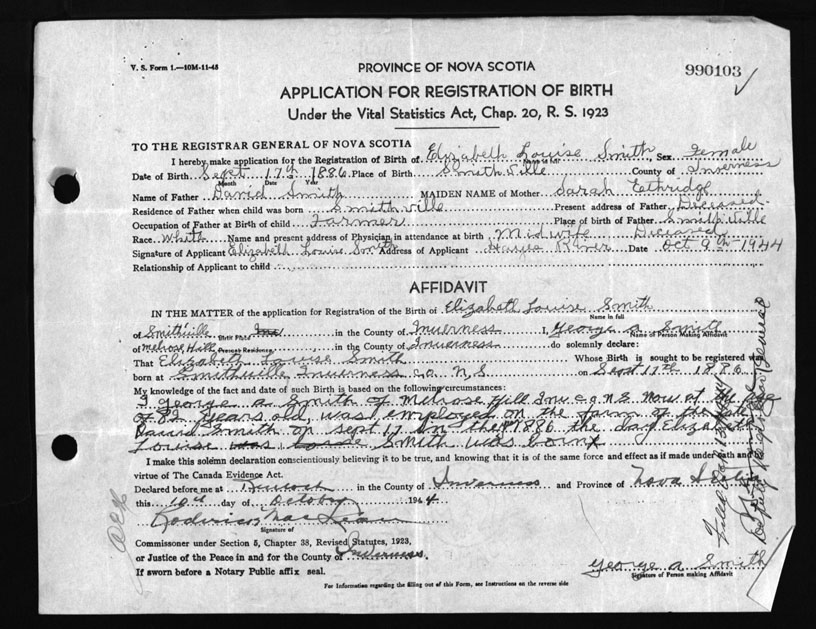 V. S. Form 1.—10M-11-43
990103
PROVINCE OF NOVA SCOTIA
APPLICATION FOR REGISTRATION OF BIRTH
Under the Vital Statistics Act, Chap. 20, R. S. 1923
TO THE REGISTRAR GENERAL OF NOVA SCOTIA
I hereby make application for the Registration of Birth of Elizabeth Louise Smith, Sex Female
Name in full
Date of Birth Sept 17th 1886 Place of Birth Smithville County of Inverness
Month Date Year
Name of Father David Smith MAIDEN NAME of Mother Sarah Ethridge
Residence of Father when child was born Smithville Present address of Father Deceased
Occupation of Father at Birth of child Farmer Place of birth of Father Smithville
Race White Name and present address of Physician in attendance at birth Midwife Deceased
Signature of Applicant Elizabeth Louise Smith Address of Applicant River Date Oct 9th 1944
Relationship of Applicant to child
AFFIDAVIT
IN THE MATTER of the application for Registration of the Birth of Elizabeth Louise Smith
Name in full
of Smithville in the County of Inverness I, George a Smith
Birth Place Name of Person Making Affidavit
of Melrose Hill in the County of Inverness do solemnly declare:
Present Residence
That Elizabeth Louise Smith Whose Birth is sought to be registered was
born at Smithville Inverness co. N.S on Sept 17th 1886
My knowledge of the fact and date of such Birth is based on the following circumstances:
I George a Smith of Melrose Hill Inv c.o N.S. Now at the age
of 82 years old, was employed on the farm of the late
David Smith on Sept 17 1886 the day Elizabeth
Louise was Smith was born
I make this solemn declaration conscientiously believing it to be true, and knowing that it is of the same force and effect as if made under oath and by
virtue of The Canada Evidence Act.
Declared before me at in the County of Inverness and Province of Nova Scotia
this 10th day of October 1944
Signature of
Commissioner under Section 5, Chapter 38, Revised Statutes, 1923,
or Justice of the Peace in and for the County of Inverness.
If sworn before a Notary Public affix seal.
George a Smith
Signature of Person making Affidavit
For Information regarding the filling out of this Form, see Instructions on the reverse side
Deputy Registrar General